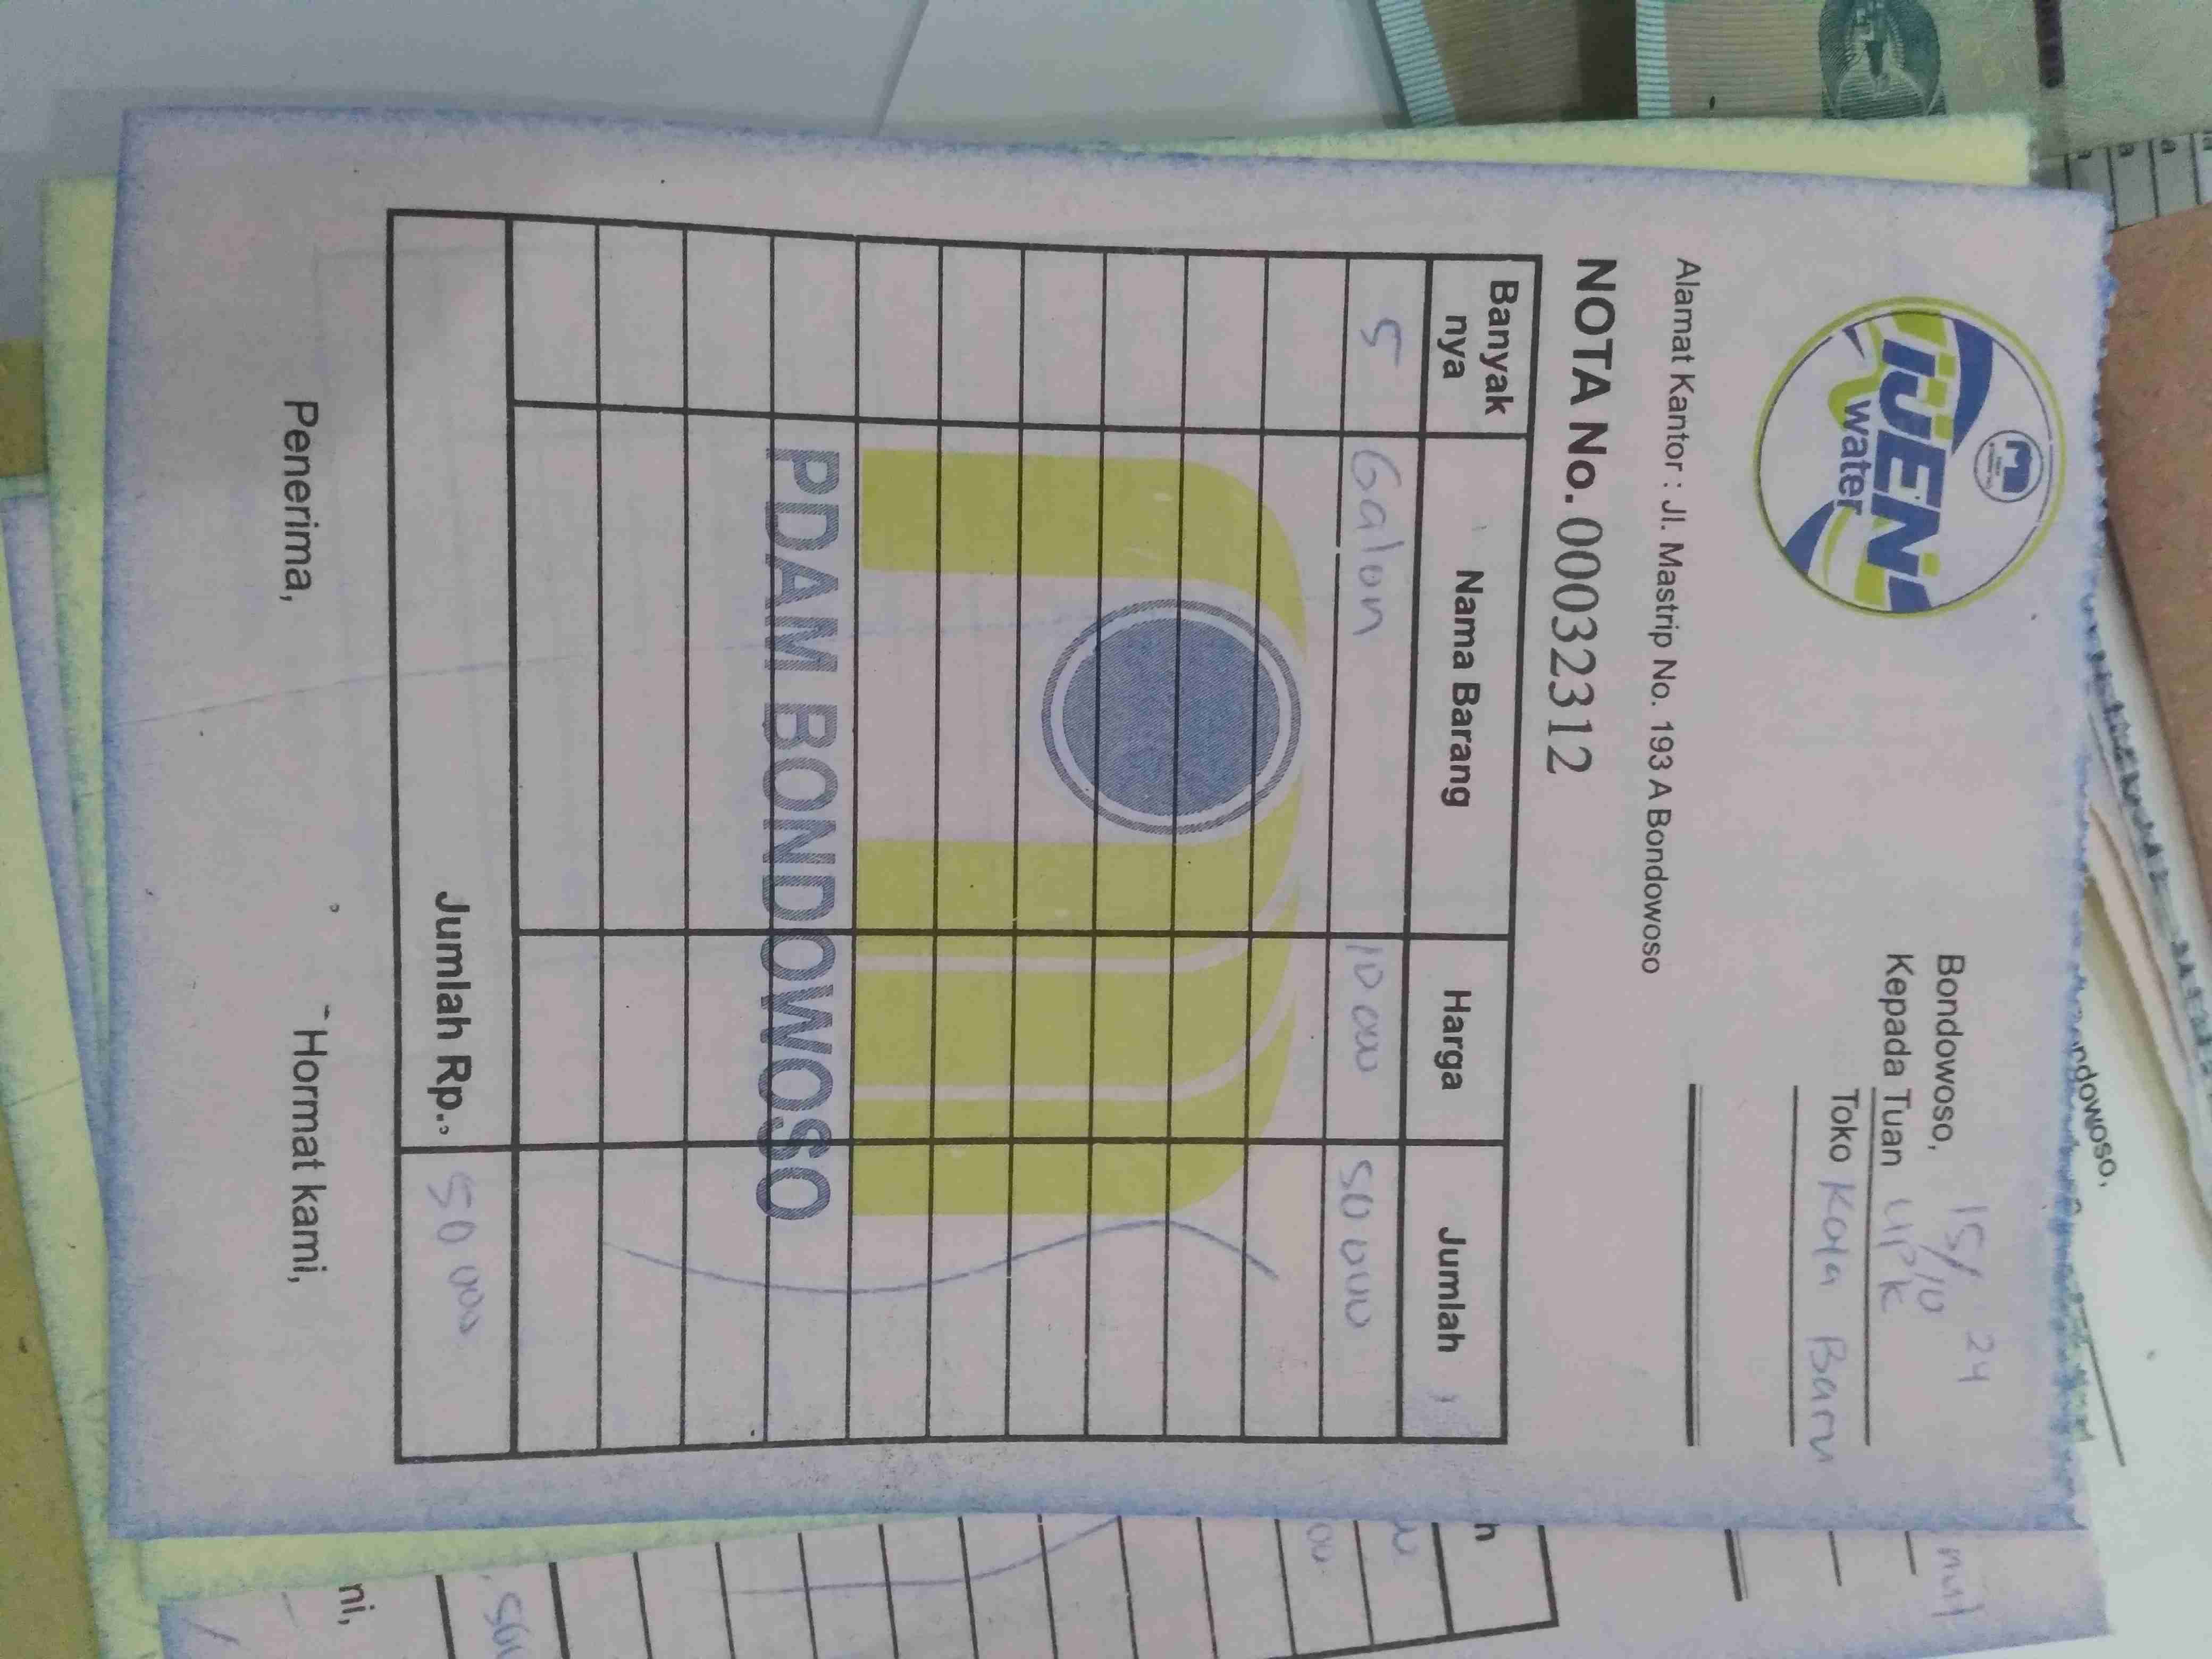 IJEN
water
Bondowoso, 15/10 24
Kepada Tuan UPK
Toko Kota Baru
Alamat Kantor : Jl. Mastrip No. 193 A Bondowoso
NOTA No. 00032312
Banyak nya Nama Barang Harga Jumlah
5 Galon 10 000 50 000
PDAM BONDOWOSO
Jumlah Rp. 50 000
Penerima, Hormat kami,
ondowoso,
h
ni,